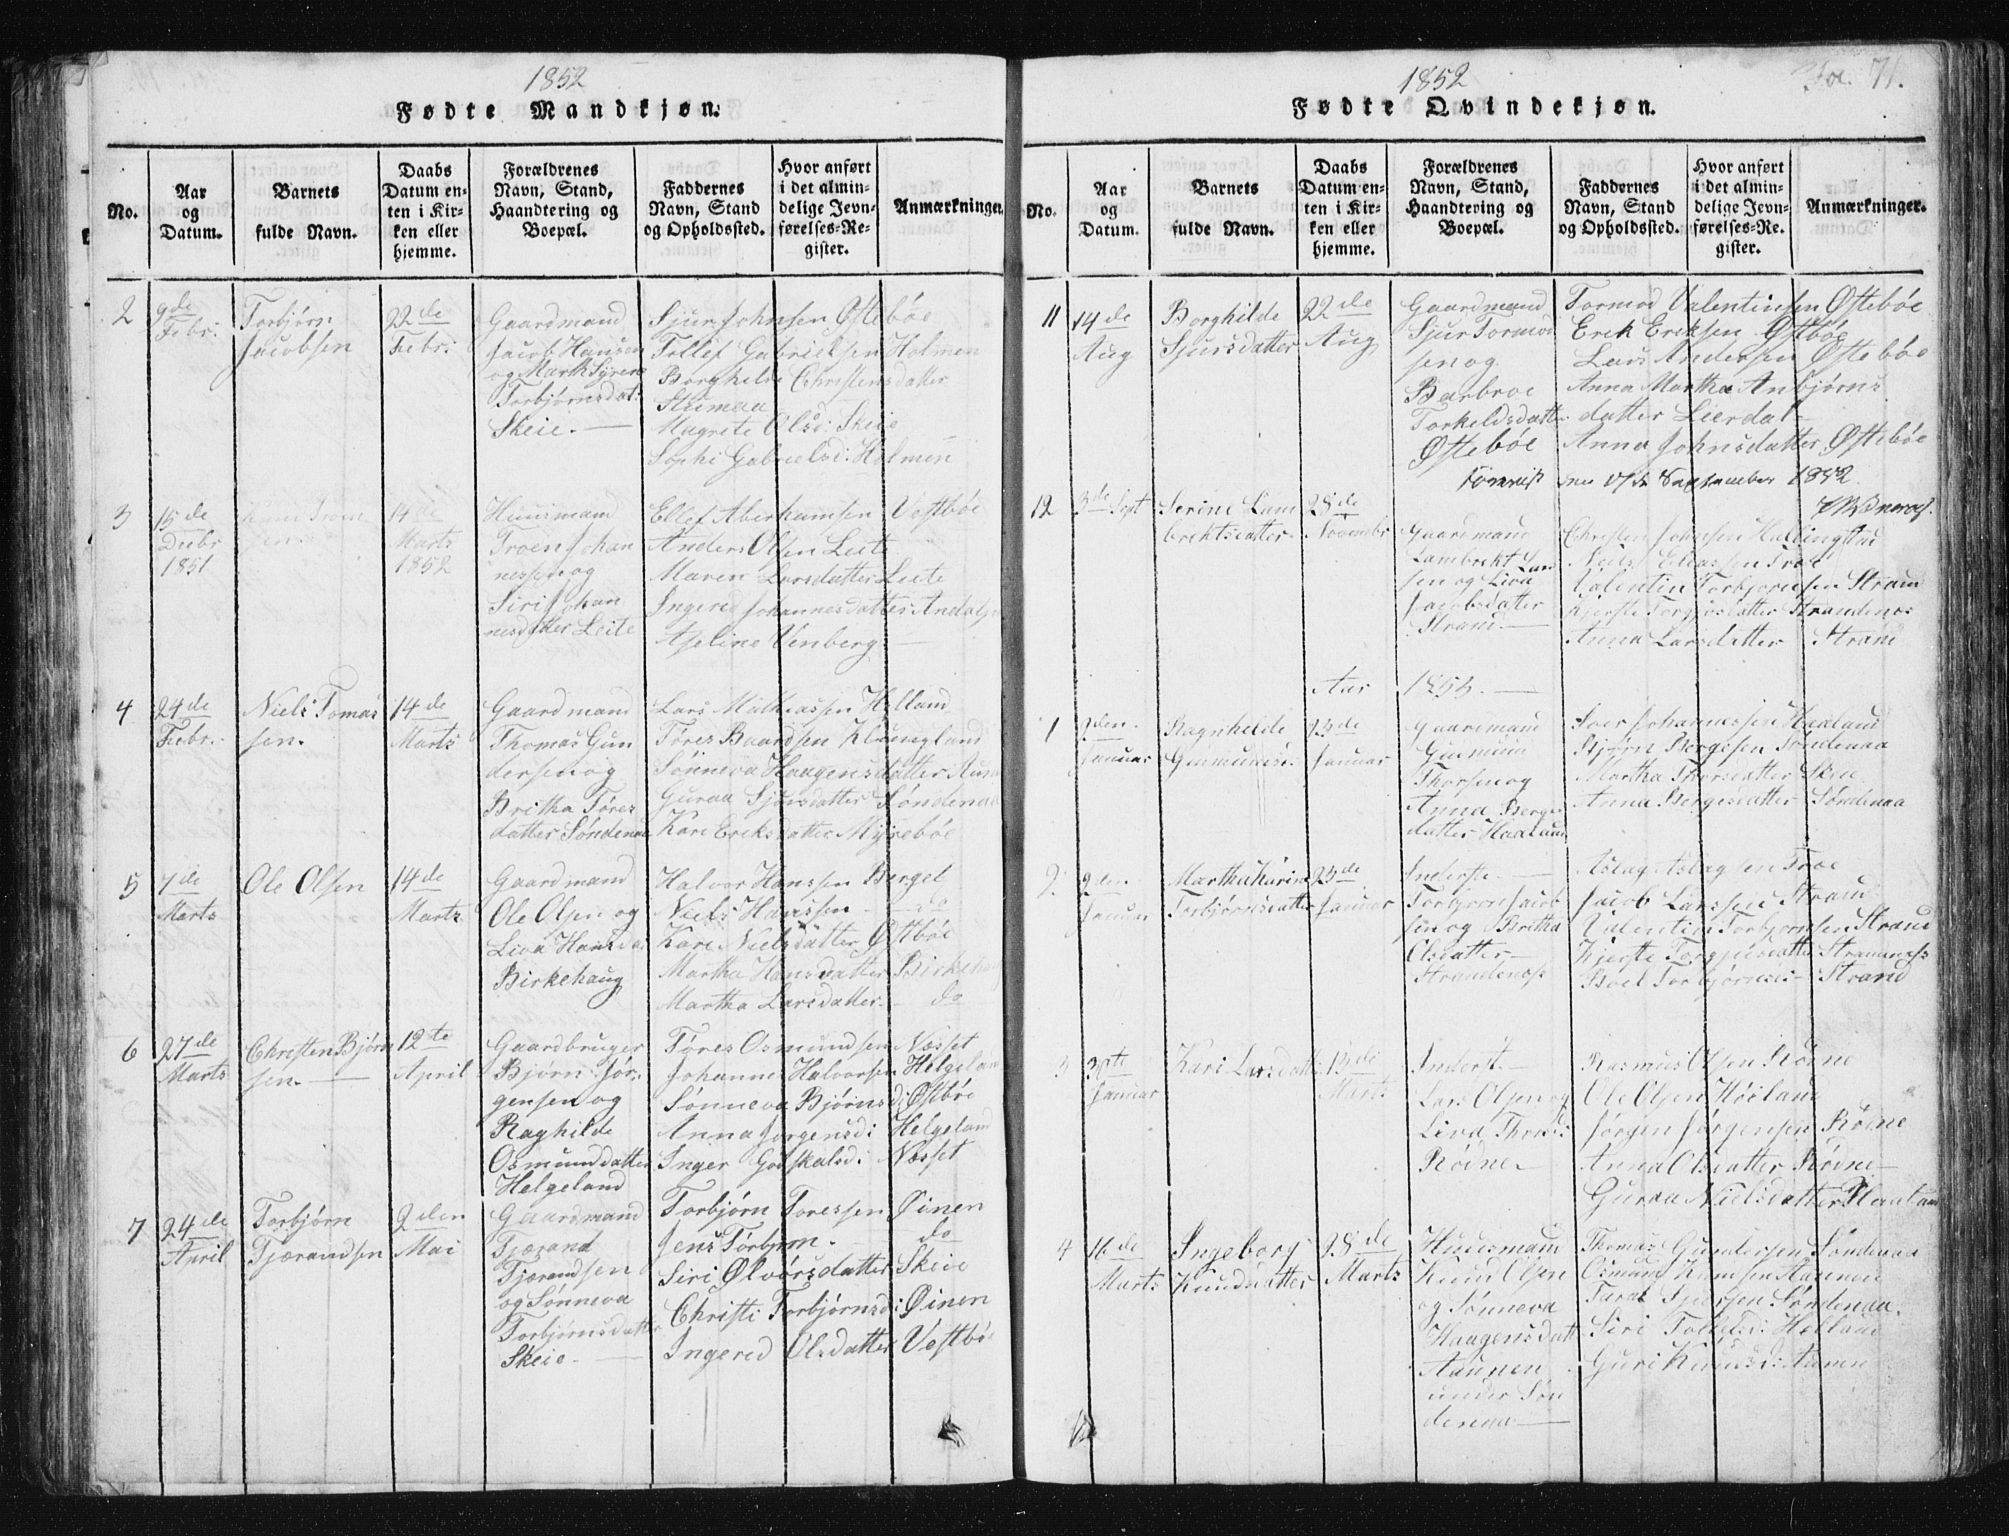 1852
Fødte Mandkjøn.
No.
Aar
og
Datum.
Barnets
fulde Navn.
Daabs
Datum en-
ten i Kir-
ken eller
hjemme.
Forældrenes
Navn, Stand,
Haandtering og
Boepæl.
Faddernes
Navn, Stand
og Opholdssted.
Hvor anført
i det almin-
delige Jevn-
førelses-Re-
gister.
Anmærkninger.
2
9de
Febr:
Torbjørn
Jacobsen
22de
Febr:
Gaardmand
Jacob Hansen
og Marth
Torbjørnsdat:
Skeie.
Sjur Johnsen Østebøe
Tollef Gabrielsen Holmen
Borghilde Christensdatter
Stumaa
Magrete Olsd: Skeie
Sophi Gabrielsd: Holmen
3
15de
Debr
1851
14de
Marts
1852
Huusmand
Troen Johan
nessen og
Siri Johan
nesdatter Leite
Ellef Aberhamsen Vestbøe
Anders Olsen Leite
Maren Larsdatter Leite
Ingered Johannesdatter
Aseline Venberg
4
24de
Febr.
Niels Tomas
sen.
14de
Marts
Gaardmand
Thomas Gun
dersen og
Britha Tøres
datter Søndenaa
Lars Mathiassen Helland
Tøres Baardsen Klungland
Sønneva Haagensdatter
Guraa Sjursdatter Søndenaa
Kari Eriksdatter Myrebøe
5
7de
Marts
Ole Olsen
14de
Marts
Gaardmand
Ole Olsen og
Liva Hansda:
Birkehaug
Halvor Hanssen Berget
Niels Hanssen do
Kari Nielsdatter Østbøe
Martha Hansdatter Birkehaug
Martha Larsdatter do
6
27de
Marts
Christen Bjørn
sen.
12te
April
Gaardbruger
Bjørn Jør-
gensen og
Raghilde
Osmunddatter
Helgeland
Tøres Osmundsen Næsset
Johanne Halvorsen Helgeland
Sønneva Bjørnsd: Østbøe
Anna Jørgensd: Helgeland
Inger Godskalsd: Næsset
7
24de
April
Torbjørn
Tjærandsen
2den
Mai
Gaardmand
Tjærand
Tjærandsen
og Sønneva
Torbjørnsdatter
Skeie.
Torbjørn Toressen Øinen
Jens Torbjørn. do
Siri Ølvørsdatter Skeie
Christi Torbjørnsd: Øinen
Ingered Olsdatter Vestbø
1852
Fol. 71.
Fødte Qvindekjøn.
No.
Aar
og
Datum.
Barnets
fulde Navn.
Daabs
Datum en-
ten i Kir-
ken eller
hjemme.
Forældrenes
Navn, Stand,
Haandtering og
Boepæl.
Faddernes
Navn, Stand
og Opholdssted.
Hvor anført
i det almin-
delige Jevn-
førelses-Re-
gister.
Anmærkninger.
11
14de
Aug
Borghilde
Sjursdatter
22de
Aug
Gaardmand
Sjur Tormod
sen og
Barbroe
Torkeldsdatter
Østebøe
Tormod Valentinsen Østebøe
Erik Eriksen Østbøe
Lars Andersen Østebøe
Anna Martha Anbjørns
datter Leerdal
Anna Johnsdatter Østebøe
September 1852.
12
3de Sept
Serine Lam
brektsdatter
28de
Novembr
Gaardmand
Lambrekt Lar
sen og Liva
Jacobsdatter
Strand.
Christen Johnsen Hallingstad
Niels Eliassen Troe
Valentin Torbjørnsen Strand
Kjerste Torgjusdatter Strandenos
Anna Larsdatter Strand
Aar 1853.
1
2den
Januar
Ragnhilde
Gudmundsd:
23de
Januar
Gaardmand
Gudmund
Thorsen og
Anna Berges
datter Haaland
Iver Johannessen Haaland
Bjørn Bergesen Søndenaa
Martha Thorsdatter Skeie
Anna Bergesdatter Søndenaa
2
2den
Januar
Martha Karine
Torbjørnsdatter
23de
Januar
Inderste.
Torbjørn Jacob
sen og Britha
Olsdatter
Strandenos
Aslag Aslagsen Troe
Jacob Larssen Strand
Valentin Torbjørnsen Strand
Kjerste Torgjusdatter Strandenos
Boel Torbjørnsd: Strand
3
31te
Januar
Kari Larsdatter
13de
Marts
Inderst.
Lars Olsen og
Liva Thorsd:
Rødne
Rasmus Olsen Rødne
Ole Olsen Høiland
Jørgen Jørgensen Rødne
Anna Olsdatter Rødne
Guraa Nielsdatter Haaland
4
16de
Marts
Ingeborg
Knudsdatter
28de
Marts
Huusmand
Knud Olsen
og Sønneva
Haagensdatt
Aaunen
under Søn
denaa
Thomas Gundersen Søndenaa
Osmund Knudsen Aaunen
Tarat Sjursen Søndenaa.
Siri Tollefsd: Helland
Guri Knudsd: Aunen